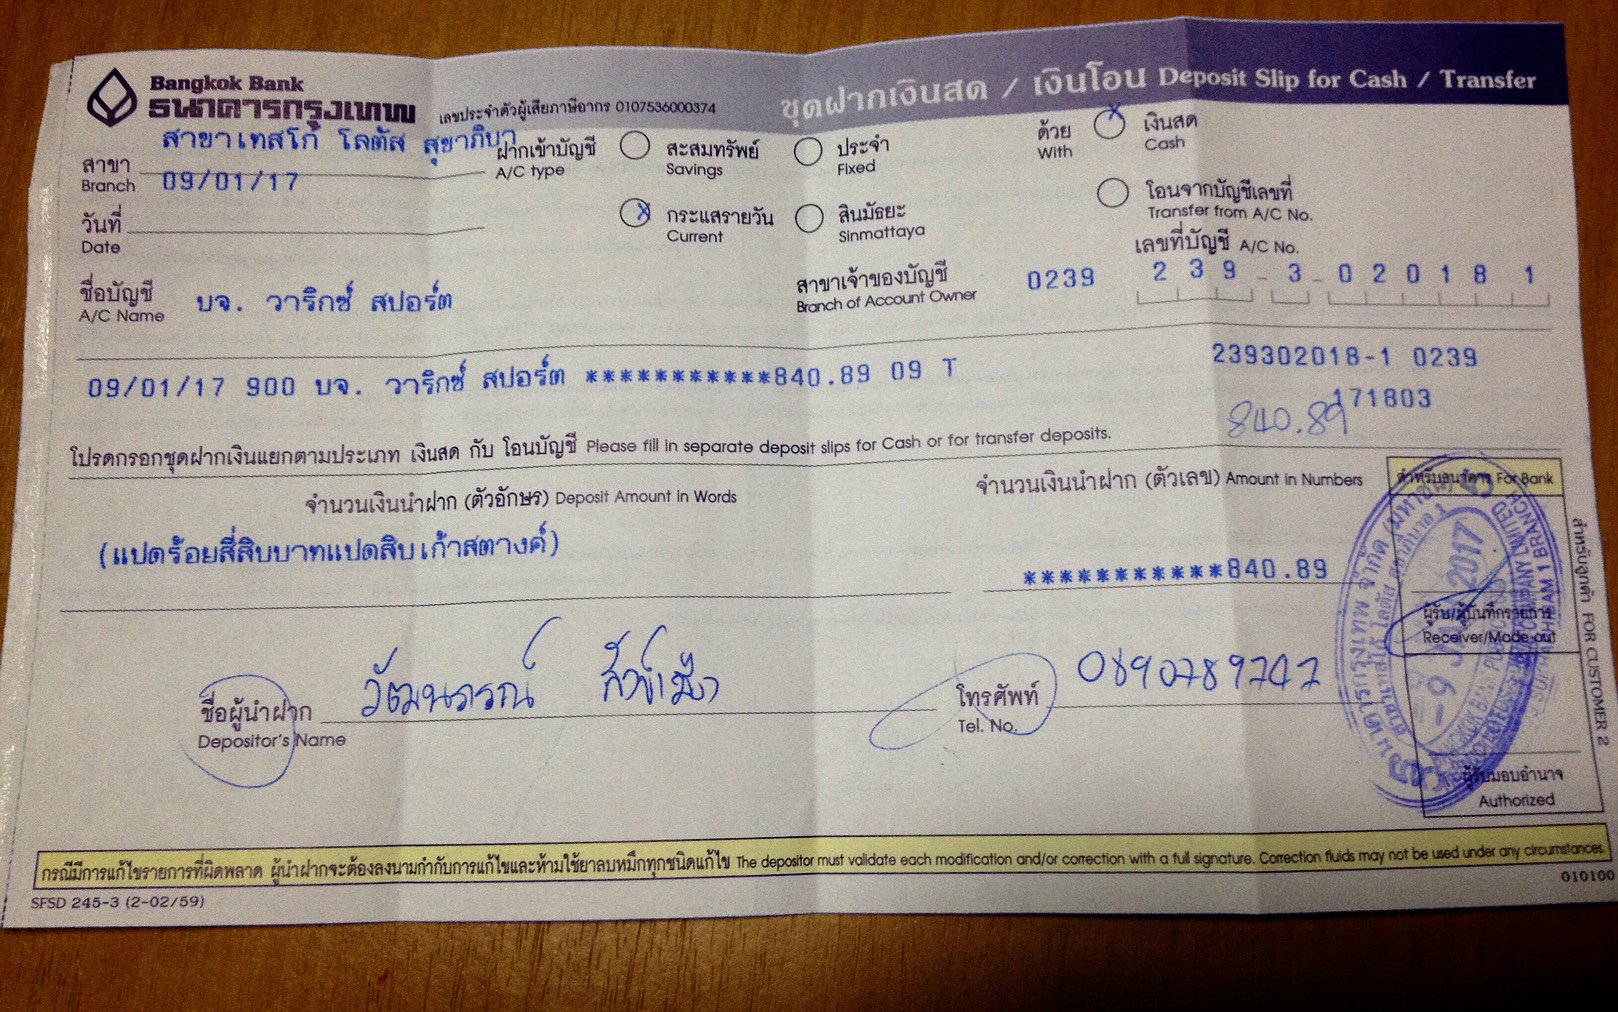 Bangkok Bank
ธนาคารกรุงเทพ
เลขประจำตัวผู้เสียภาษีอากร 0107536000374
ชุดฝากเงินสด / เงินโอน Deposit Slip for Cash / Transfer
สาขาเทสโก้ โลตัส สุขาภิบา
สาขา
Branch
09/01/17
วันที่
Date
ฝากเข้าบัญชี
A/C type
สะสมทรัพย์
Savings
ประจำ
Fixed
กระแสรายวัน
Current
สินมัธยะ
Sinmattaya
ด้วย
With
เงินสด
Cash
โอนจากบัญชีเลขที่
Transfer from A/C No.
ชื่อบัญชี
A/C Name
บจ. วาริกซ์ สปอร์ต
สาขาเจ้าของบัญชี
Branch of Account Owner
0239
เลขที่บัญชี A/C No.
2 3 9 - 3 - 0 2 0 1 8 1
09/01/17 900 บจ. วาริกซ์ สปอร์ต ***********840.89 09 T
239302018-1 0239
171803
840.89
โปรดกรอกชุดฝากเงินแยกตามประเภท เงินสด กับ โอนบัญชี Please fill in separate deposit slips for Cash or for transfer deposits.
จำนวนเงินนำฝาก (ตัวอักษร) Deposit Amount in Words
จำนวนเงินนำฝาก (ตัวเลข) Amount in Numbers
สำหรับธนาคาร For Bank
(แปดร้อยสี่สิบบาทแปดสิบเก้าสตางค์)
***********840.89
ผู้รับ/ผู้บันทึกรายการ
Receiver/Made out
ชื่อผู้นำฝาก
Depositor's Name
วัฒนภรณ์
โทรศัพท์
Tel. No.
0890789747
ผู้รับมอบอำนาจ
Authorized
สำหรับลูกค้า FOR CUSTOMER 2
กรณีมีการแก้ไขรายการที่ผิดพลาด ผู้นำฝากจะต้องลงนามกำกับการแก้ไขและห้ามใช้ยาลบหมึกทุกชนิดแก้ไข The depositor must validate each modification and/or correction with a full signature. Correction fluids may not be used under any circumstances.
SFSD 245-3 (2-02/59)
010100